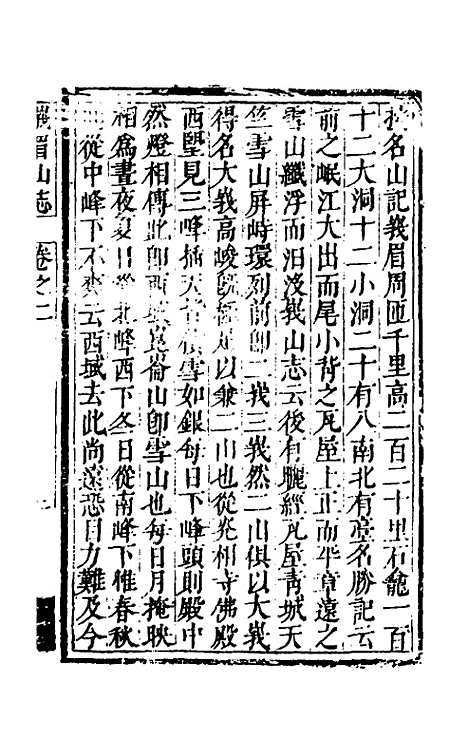 名山記峩眉周匝千里高二百二十里石龕一百
十二大洞十二小洞二十有八南北有臺名勝記云
前之岷江大出而尾小背之瓦屋上正而平章遠之
雪山纖浮而汨沒峩山志云後有曬經瓦屋靑城天
竺雪山屏峙環列前卽二峩三峩然二山俱以大峩
得名大峩高峻足以兼二山也從光相寺佛殿
西望見三峰插天雪如銀每日下峰頭則殿中
然燈相傳此卽西域崑崙山卽雪山也每日月掩映
相爲晝夜夏日從北峰西下冬日從南峰下惟春秋
從中峰下不爽云西域去此尚遠恐目力難及今
峨眉山志
卷之二